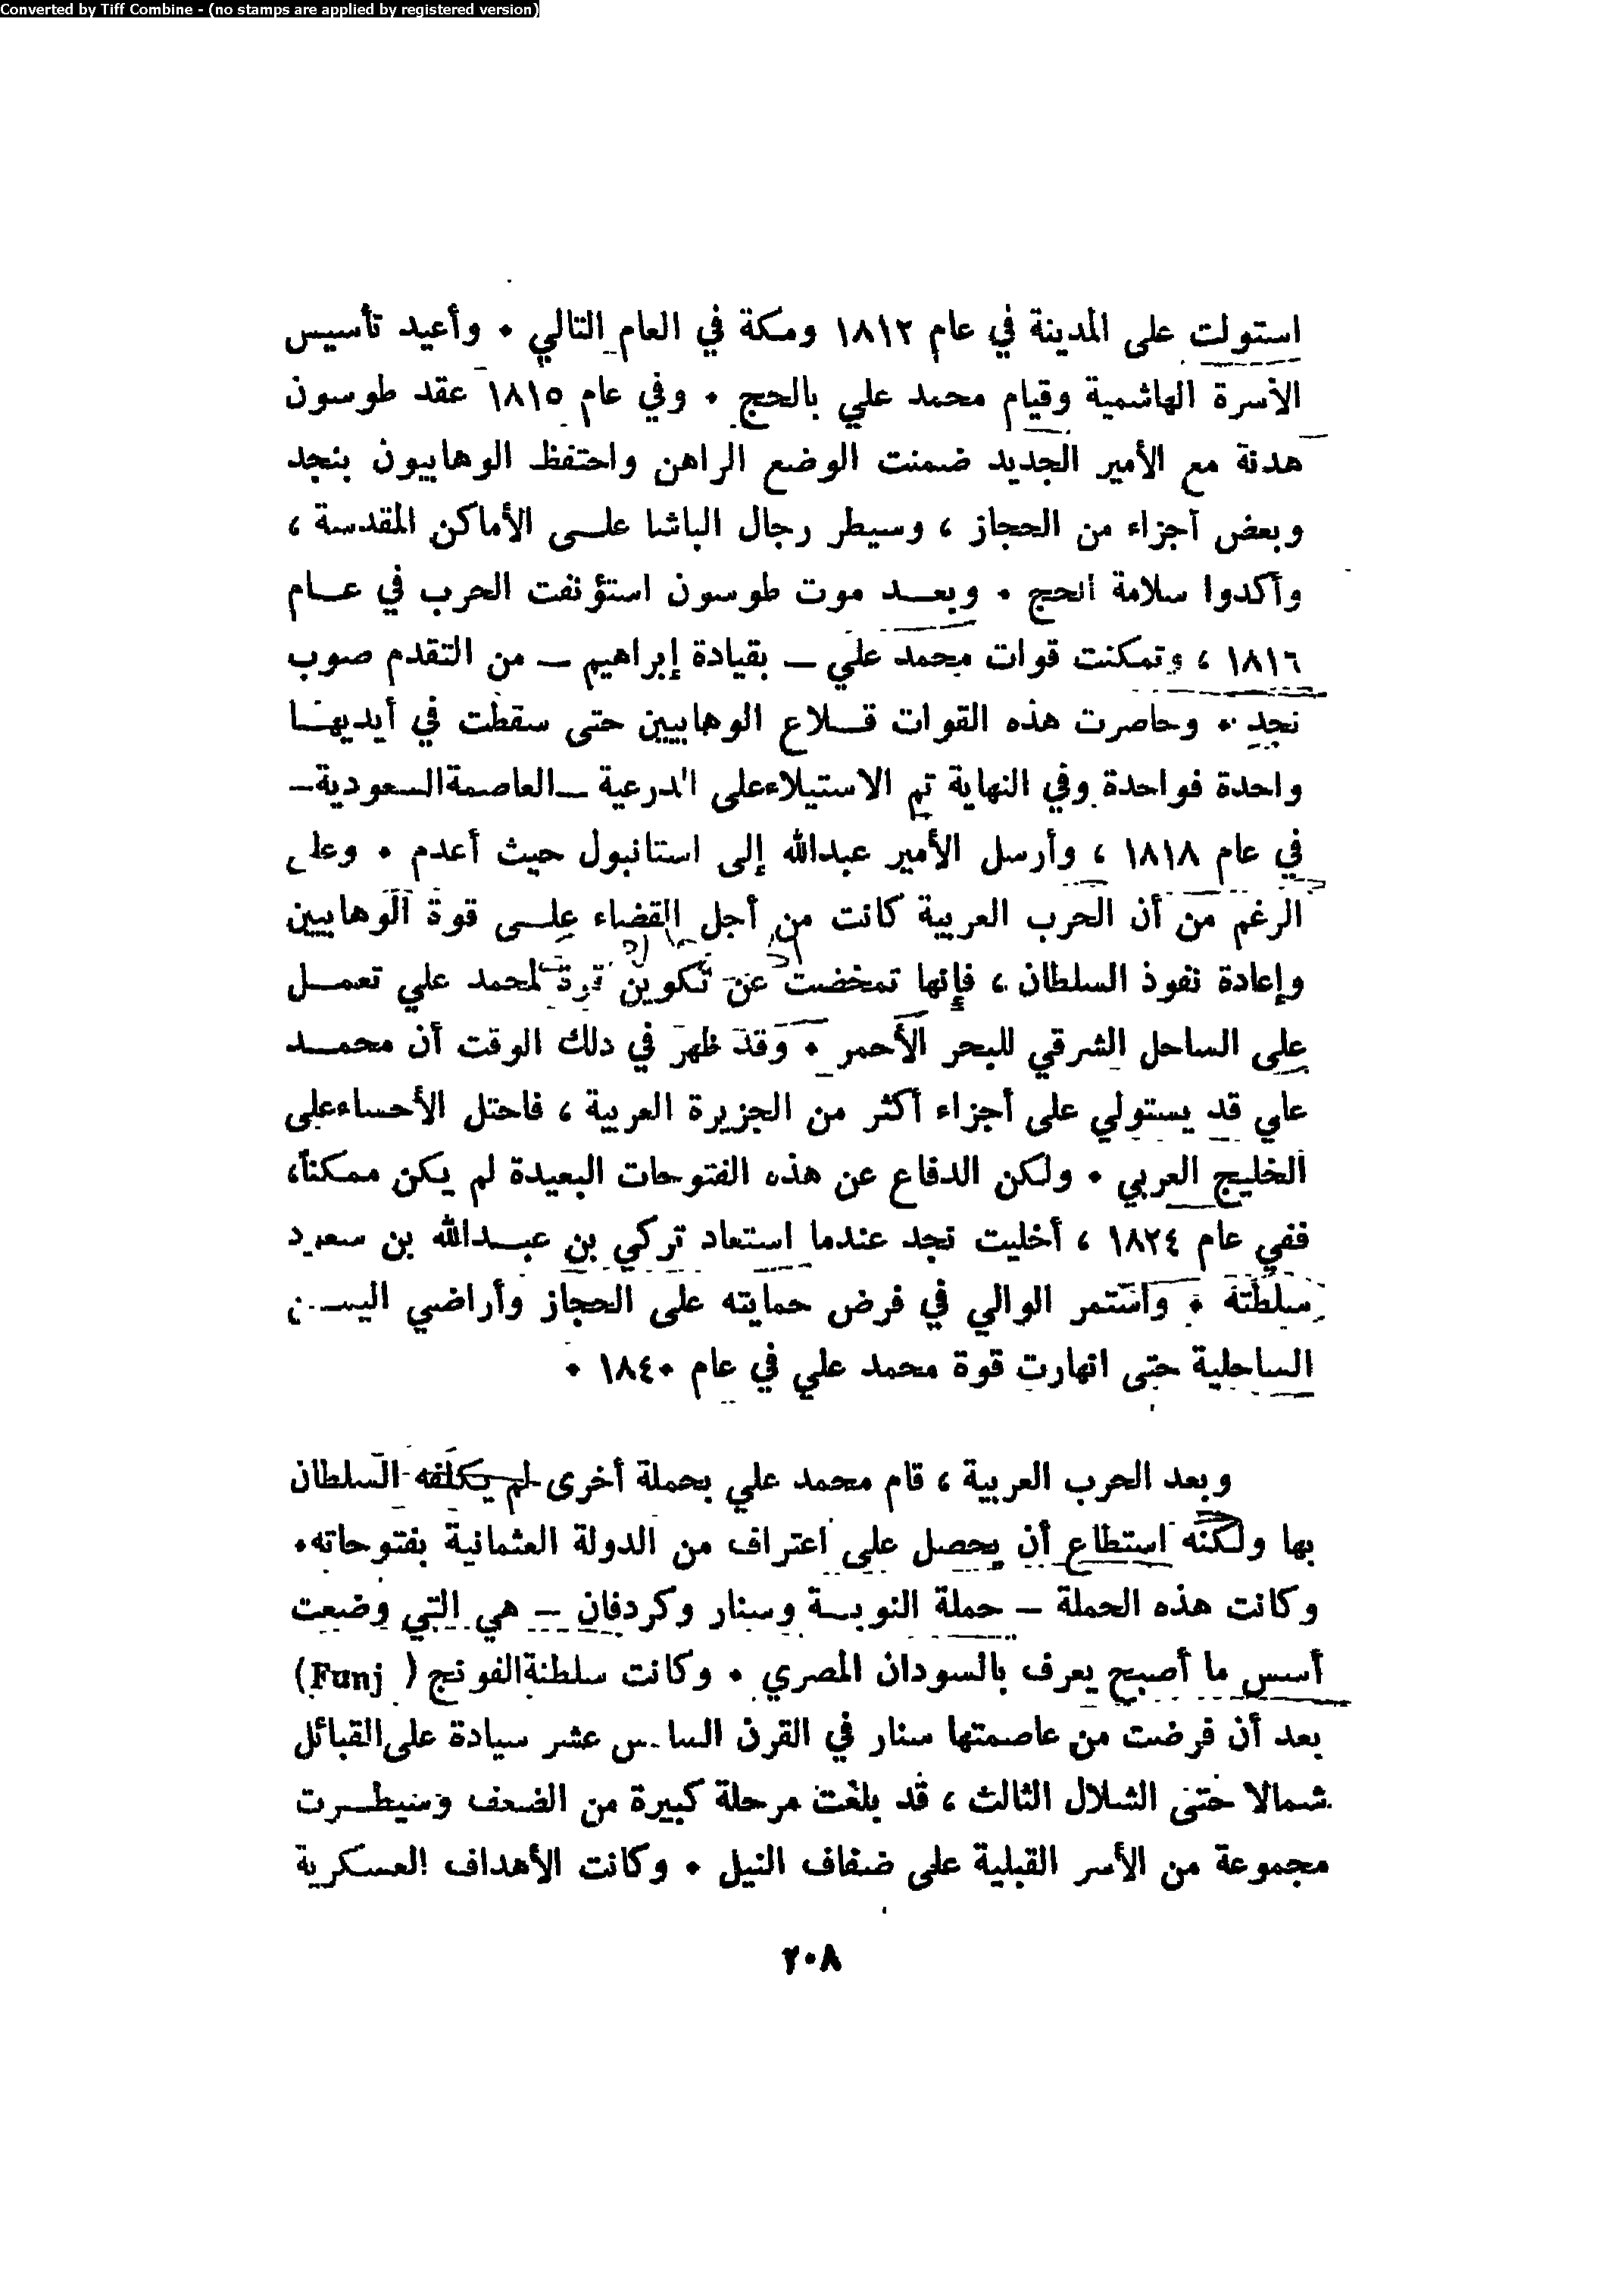 Converted by Tiff Combine - (no stamps are applied by registered version)
استولت على المدينة في عام ١٨١٢ ومكة في العام التالي . وأعيد تأسيس
الأسرة الهاشمية وقيام محمد علي بالحج . وفي عام ١٨١٥ عقد طوسون
هدنة مع الأمير الجديد ضمنت الوضع الراهن واحتفظ الوهابيون بنجد
وبعض أجزاء من الحجاز ، وسيطر رجال الباشا علـى الأماكن المقدسة ،
وأكدوا سلامة الحج . وبعـد موت طوسون استؤنفت الحرب في عـام
١٨١٦ ، وتمكنت قوات محمد علي ــ بقيادة إبراهيم ــ من التقدم صوب
نجد . وحاصرت هذه القوات قـلاع الوهابيين حتى سقطت في أيديهـا
واحدة فواحدة وفي النهاية تم الاستيلاء على الدرعية ــ العاصمة السعودية ــ
في عام ١٨١٨ ، وأرسل الأمير عبدالله إلى استانبول حيث أعدم . وعلى
الرغم من أن الحرب العربية كانت من أجل القضاء علـى قوة الوهابيين
وإعادة نفوذ السلطان ، فإنها تمخضت عن تكوين قوة لمحمد علي تعمـل
على الساحل الشرقي للبحر الأحمر . وقد ظهر في ذلك الوقت أن محمـد
علي قد يستولي على أجزاء أكثر من الجزيرة العربية ، فاحتل الأحساء على
الخليج العربي . ولكن الدفاع عن هذه الفتوحات البعيدة لم يكن ممكناً،
ففي عام ١٨٢٤ ، أخليت نجد عندما استعاد تركي بن عبـدالله بن سعود
سلطته . واستمر الوالي في فرض حمايته على الحجاز وأراضي اليمـن
الساحلية حتى انهارت قوة محمد علي في عام ١٨٤٠ .
وبعد الحرب العربية ، قام محمد علي بحملة أخرى لم يكلفه السلطان
بها ولكنه استطاع أن يحصل على اعتراف من الدولة العثمانية بفتوحاته.
وكانت هذه الحملة ــ حملة النوبـة وسنار وكردفان ــ هي التي وضعت
أسس ما أصبح يعرف بالسودان المصري . وكانت سلطنة الفونج ( Funj)
بعد أن فرضت من عاصمتها سنار في القرن السادس عشر سيادة على القبائل
شمالا حتى الشلال الثالث ، قد بلغت مرحلة كبيرة من الضعف وسيطـرت
مجموعة من الأسر القبلية على ضفاف النيل . وكانت الأهداف العسكرية
٢٠٨